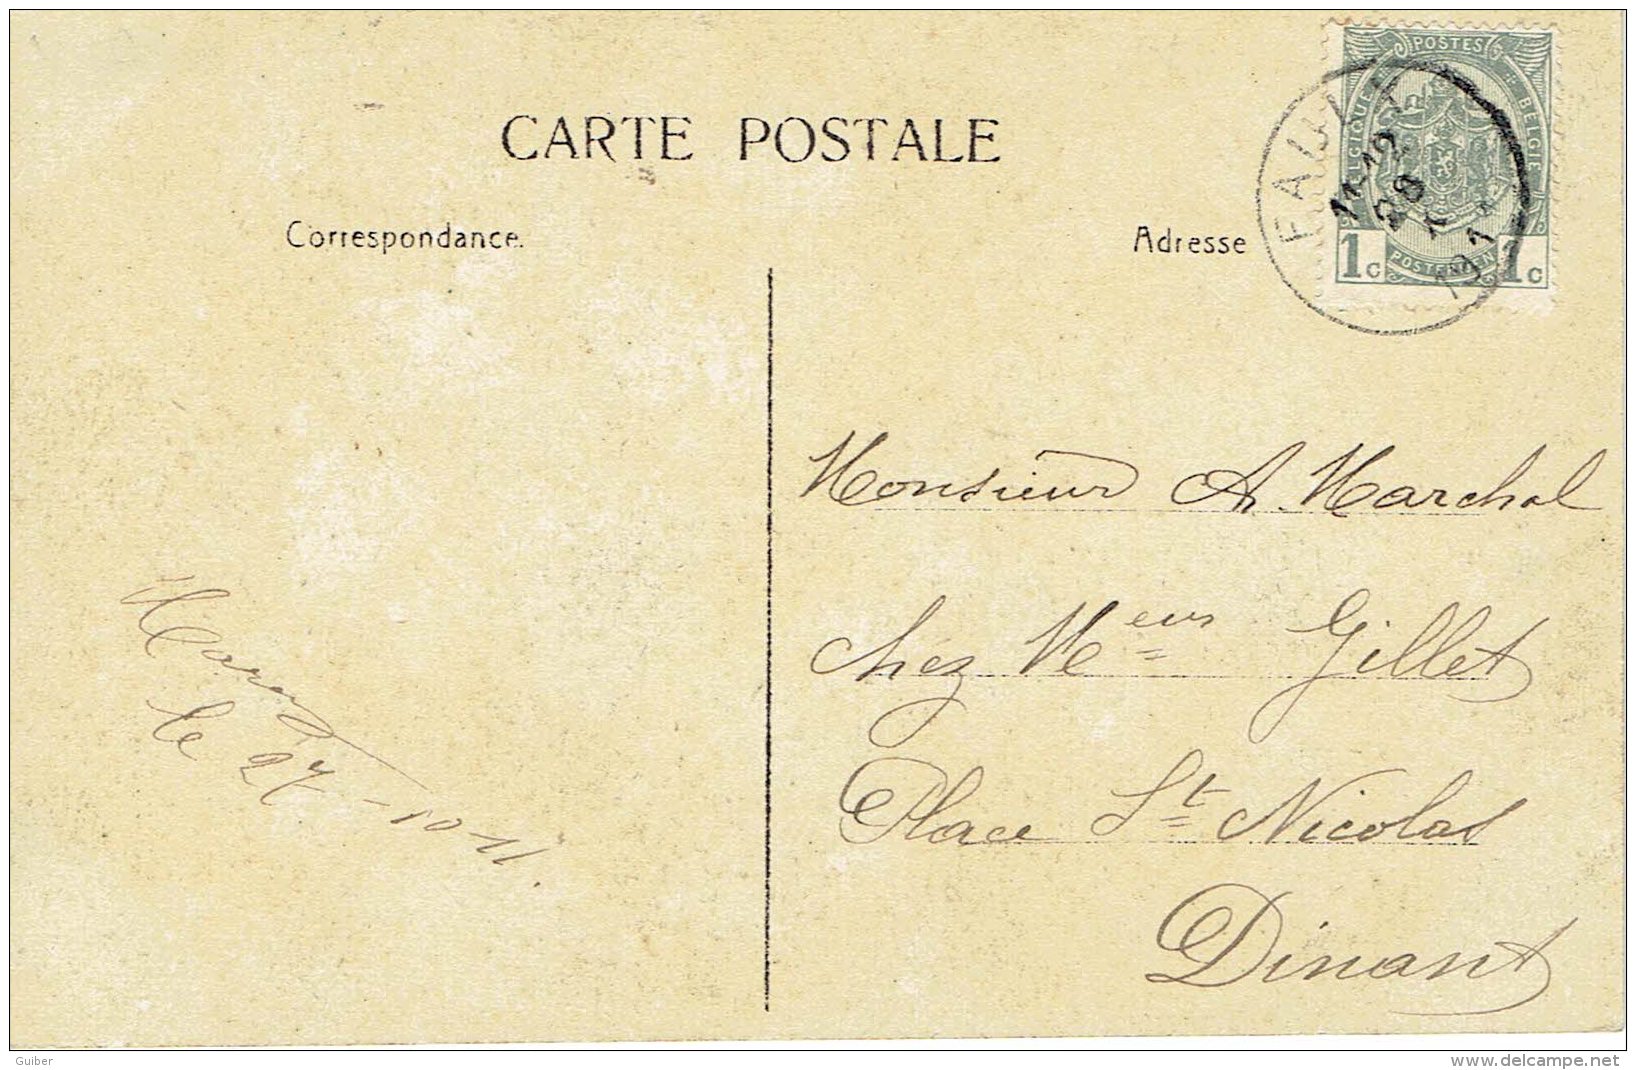 CARTE POSTALE
Correspondance.
Adresse
POSTES
BELGIQUE
BELGIË
POSTERIJEN
1c 1c
11-12
28
X
1911
Monsieur A. Marchal
chez Me eur Gillet
Place St Nicolas
Dinant
le 27-10 11.
Guiber
www.delcampe.net